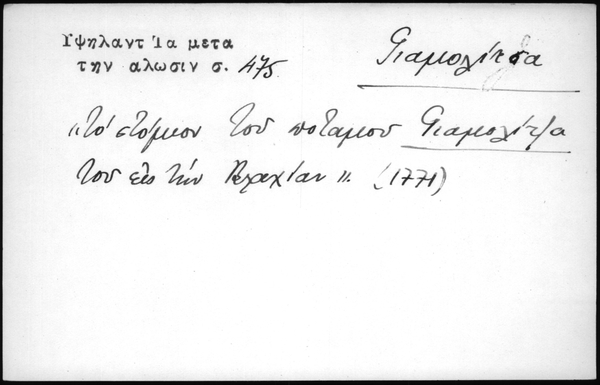 Υψηλαντ Ία μετα
την αλωσιν σ. 475.
Γιαμολίτσα
"τό στόμιον του ποταμού Γιαμολίτζα
του εἰς τήν Βλαχίαν". (1771)